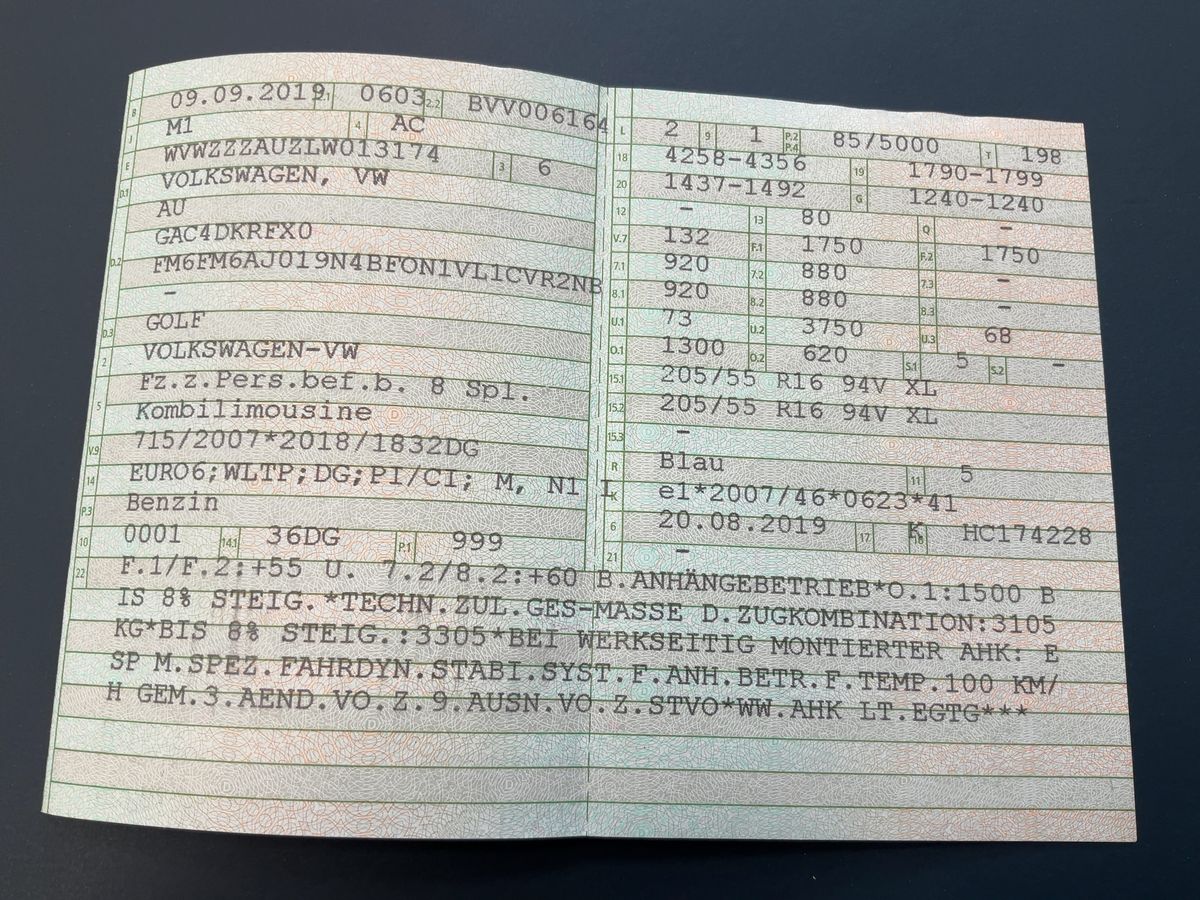 B 09.09.2019 2.1 0603 2.2 BVV006164
J M1 4 AC
E WVWZZZAUZLW013174 3 6
D.1 VOLKSWAGEN, VW
AU
D.2 GAC4DKRFX0
FM6FM6AJ019N4BFON1VL1CVR2NB
–
D.3 GOLF
2 VOLKSWAGEN-VW
Fz.z.Pers.bef.b. 8 Spl.
5 Kombilimousine
V.9 715/2007*2018/1832DG
14 EURO6;WLTP;DG;PI/CI; M, N1 I
P.3 Benzin
10 0001 14.1 36DG P.1 999
L 2 9 1 P.2 P.4 85/5000 T 198
18 4258-4356 19 1790-1799
20 1437-1492 G 1240-1240
12 – 13 80 Q –
V.7 132 F.1 1750 F.2 1750
7.1 920 7.2 880 7.3 –
8.1 920 8.2 880 8.3 –
U.1 73 U.2 3750 U.3 68
O.1 1300 O.2 620 S.1 5 S.2 –
15.1 205/55 R16 94V XL
15.2 205/55 R16 94V XL
15.3 –
R Blau 11 5
K e1*2007/46*0623*41
6 20.08.2019 17 K 16 HC174228
21 –
22 F.1/F.2:+55 U. 7.2/8.2:+60 B.ANHÄNGEBETRIEB*O.1:1500 B
IS 8% STEIG.*TECHN.ZUL.GES-MASSE D.ZUGKOMBINATION:3105
KG*BIS 8% STEIG.:3305*BEI WERKSEITIG MONTIERTER AHK: E
SP M.SPEZ.FAHRDYN.STABI.SYST.F.ANH.BETR.F.TEMP.100 KM/
H GEM.3.AEND.VO.Z.9.AUSN.VO.Z.STVO*WW.AHK LT.EGTG***